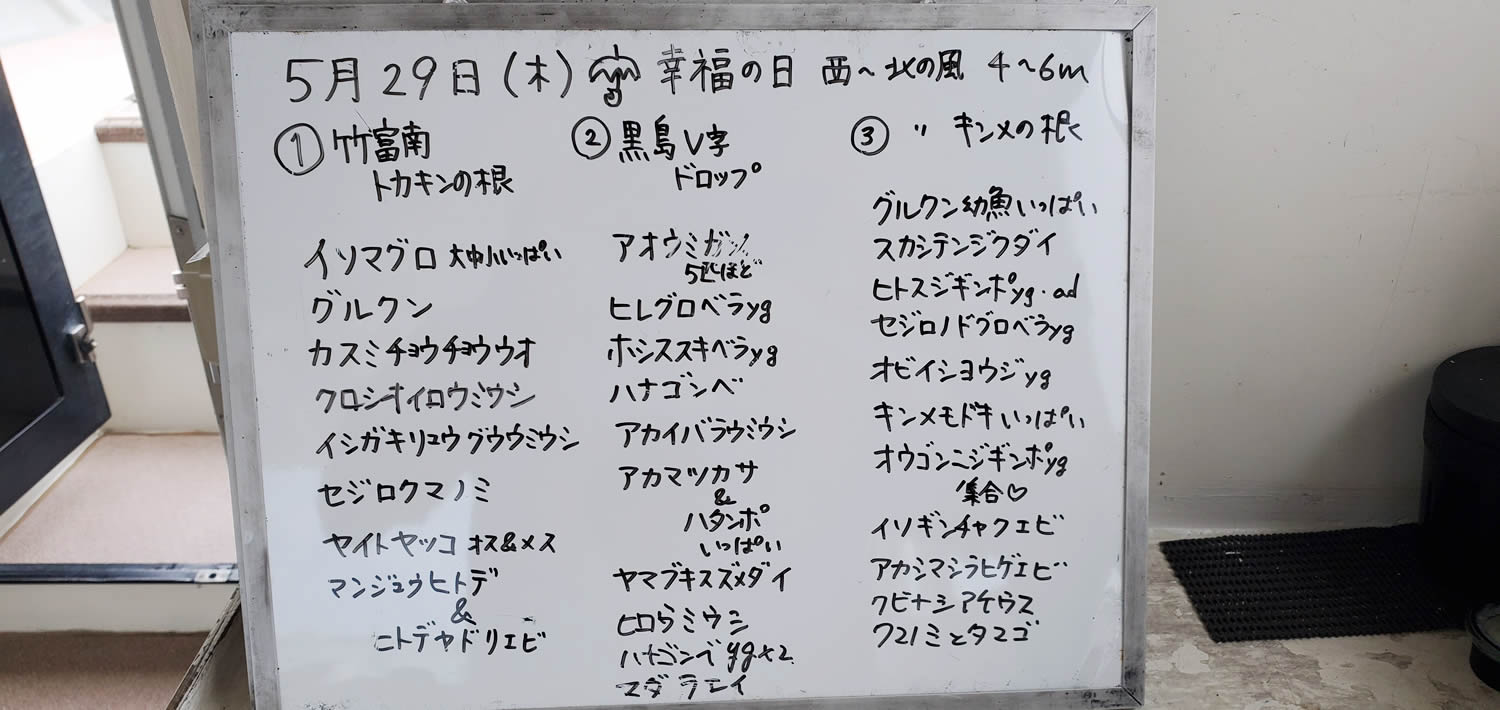 5月29日(木) 幸福の日 西~北の風 4~6m
① 竹富南
トカキンの根
イソマグロ 大中小いっぱい
グルクン
カスミチョウチョウウオ
クロシオイロウミウシ
イシガキリュウグウウミウシ
セジロクマノミ
ヤイトヤッコ オス&メス
マンジュウヒトデ
&
ヒトデヤドリエビ
② 黒島V字
ドロップ
アオウミガメ
5匹ほど
ヒレグロベラyg
ホシススキベラyg
ハナゴンベ
アカイバラウミウシ
アカマツカサ
&
ハタンポ
いっぱい
ヤマブキスズメダイ
ヒロウミウシ
ハナゴンベygx2
マダラエイ
③ 〃 キンメの根
グルクン幼魚いっぱい
スカシテンジクダイ
ヒトスジギンポyg・ad
セジロノドグロベラyg
オビイシヨウジyg
キンメモドキいっぱい
オウゴンニジギンポyg
集合♡
イソギンチャクエビ
アカシマシラヒゲエビ
クビナシアケウス
クマノミとタマゴ